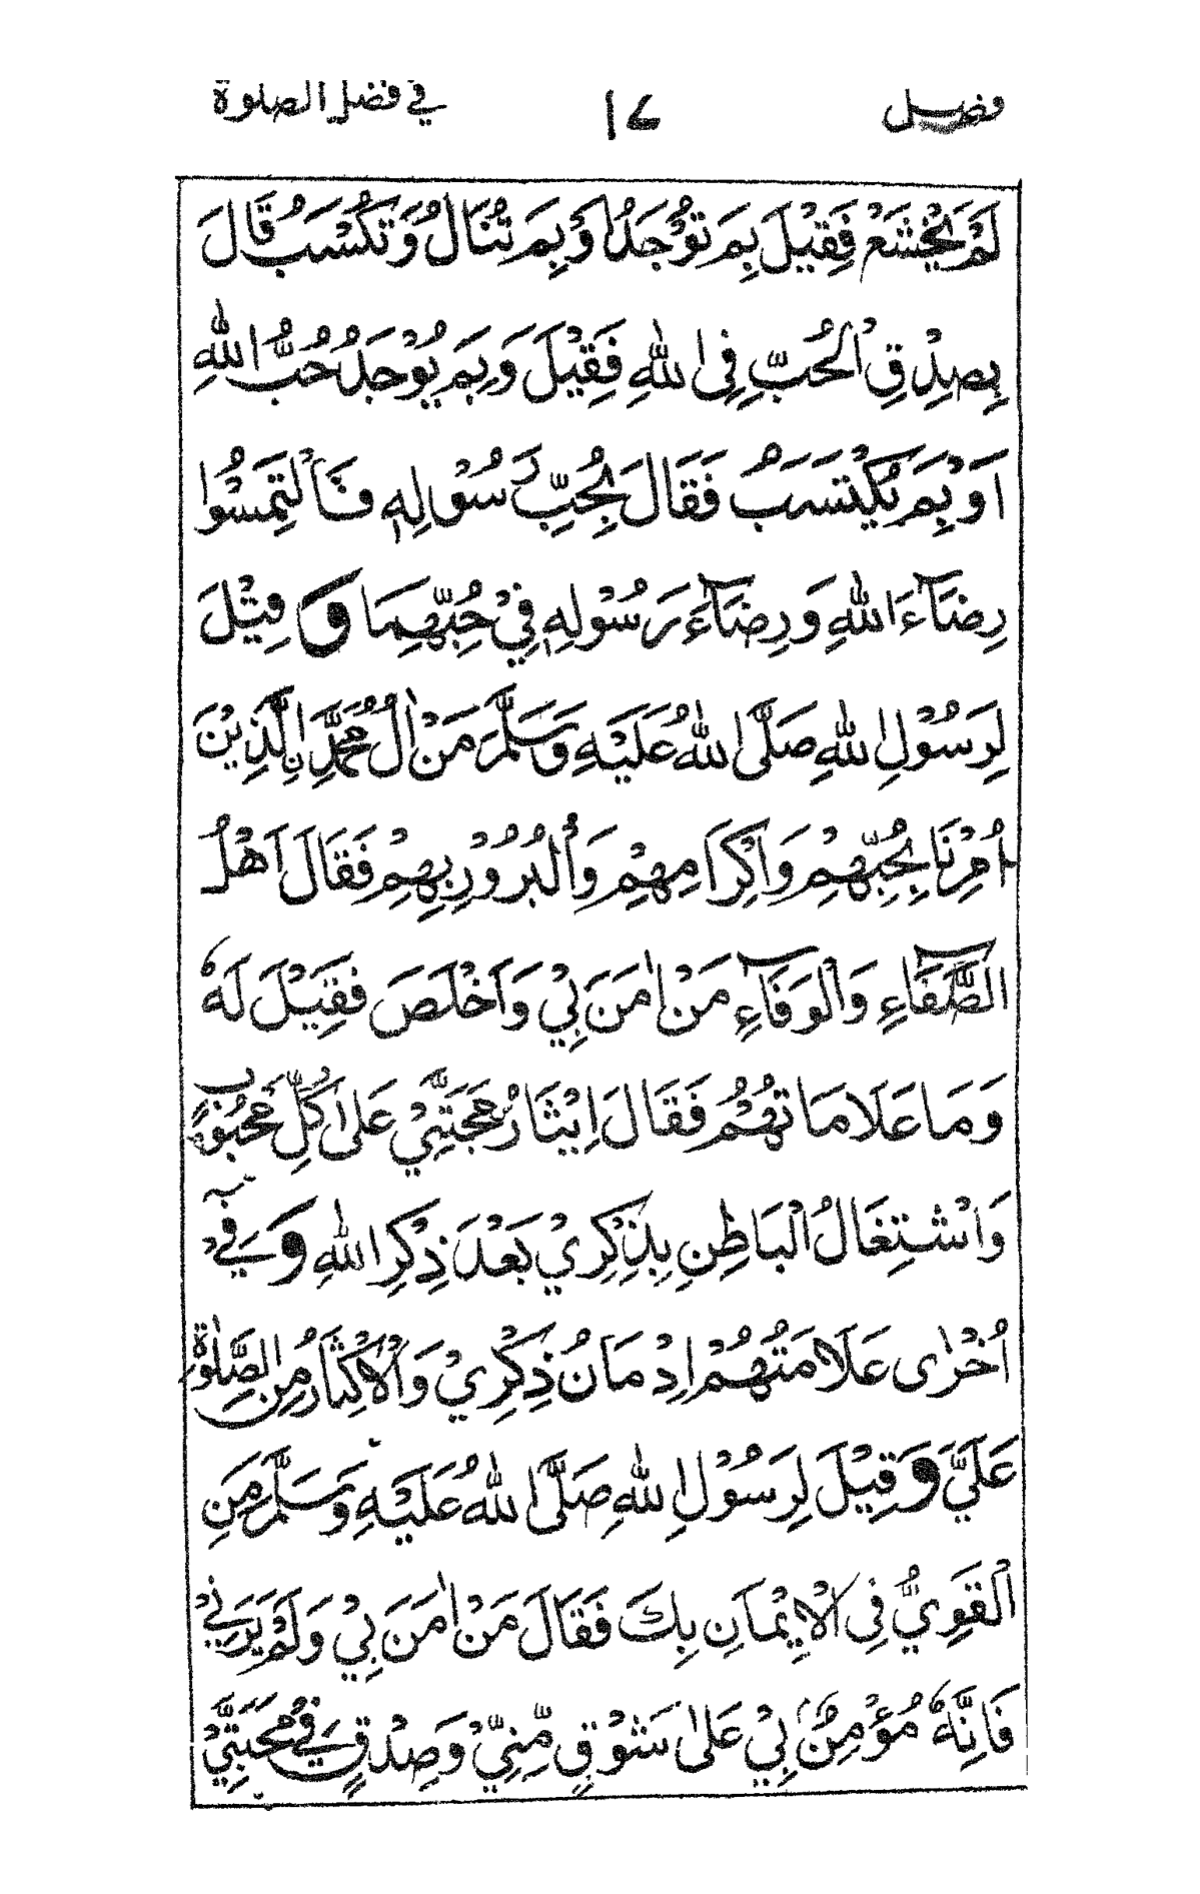 فصل ١٧ في فضل الصلوة
لَمْ يَخْشَعْ فَقِيْلَ بِمَ تُوْجَدُ اَوْ بِمَ تُنَالُ وَتُكْسَبُ قَالَ
بِصِدْقِ الْحُبِّ فِى اللهِ فَقِيْلَ وَبِمَ يُوْجَدُ حُبُّ اللهِ
اَوْ بِمَ يُكْتَسَبُ فَقَالَ بِحُبِّ رَسُوْلِهٖ فَالْتَمِسُوْا
رِضَآءَ اللهِ وَرِضَآءَ رَسُوْلِهٖ فِيْ حُبِّهِمَا وَ قِيْلَ
لِرَسُوْلِ اللهِ صَلَّى اللهُ عَلَيْهِ وَسَلَّمَ مَنْ اٰلُ مُحَمَّدِ ۨالَّذِيْنَ
اُمِرْنَا بِحُبِّهِمْ وَاِكْرَامِهِمْ وَالْبُرُوْرِ بِهِمْ فَقَالَ اَهْلُ
الصَّفَآءِ وَالْوَفَآءِ مَنْ اٰمَنَ بِيْ وَاَخْلَصَ فَقِيْلَ لَهٗ
وَمَا عَلَامَاتُهُمْ فَقَالَ اِيْثَارُ مَحَبَّتِيْ عَلٰى كُلِّ مَحْبُوْبٍ
وَاشْتِغَالُ الْبَاطِنِ بِذِكْرِيْ بَعْدَ ذِكْرِ اللهِ وَ فِيْ
اُخْرٰى عَلَامَتُهُمْ اِدْمَانُ ذِكْرِيْ وَالْاِكْثَارُ مِنَ الصَّلٰوةِ
عَلَيَّ وَ قِيْلَ لِرَسُوْلِ اللهِ صَلَّى اللهُ عَلَيْهِ وَسَلَّمَ مَنِ
الْقَوِيُّ فِى الْاِيْمَانِ بِكَ فَقَالَ مَنْ اٰمَنَ بِيْ وَلَمْ يَرَنِيْ
فَاِنَّهٗ مُؤْمِنٌ بِيْ عَلٰى شَوْقٍ مِّنِّيْ وَصِدْقٍ فِيْ مَحَبَّتِيْ